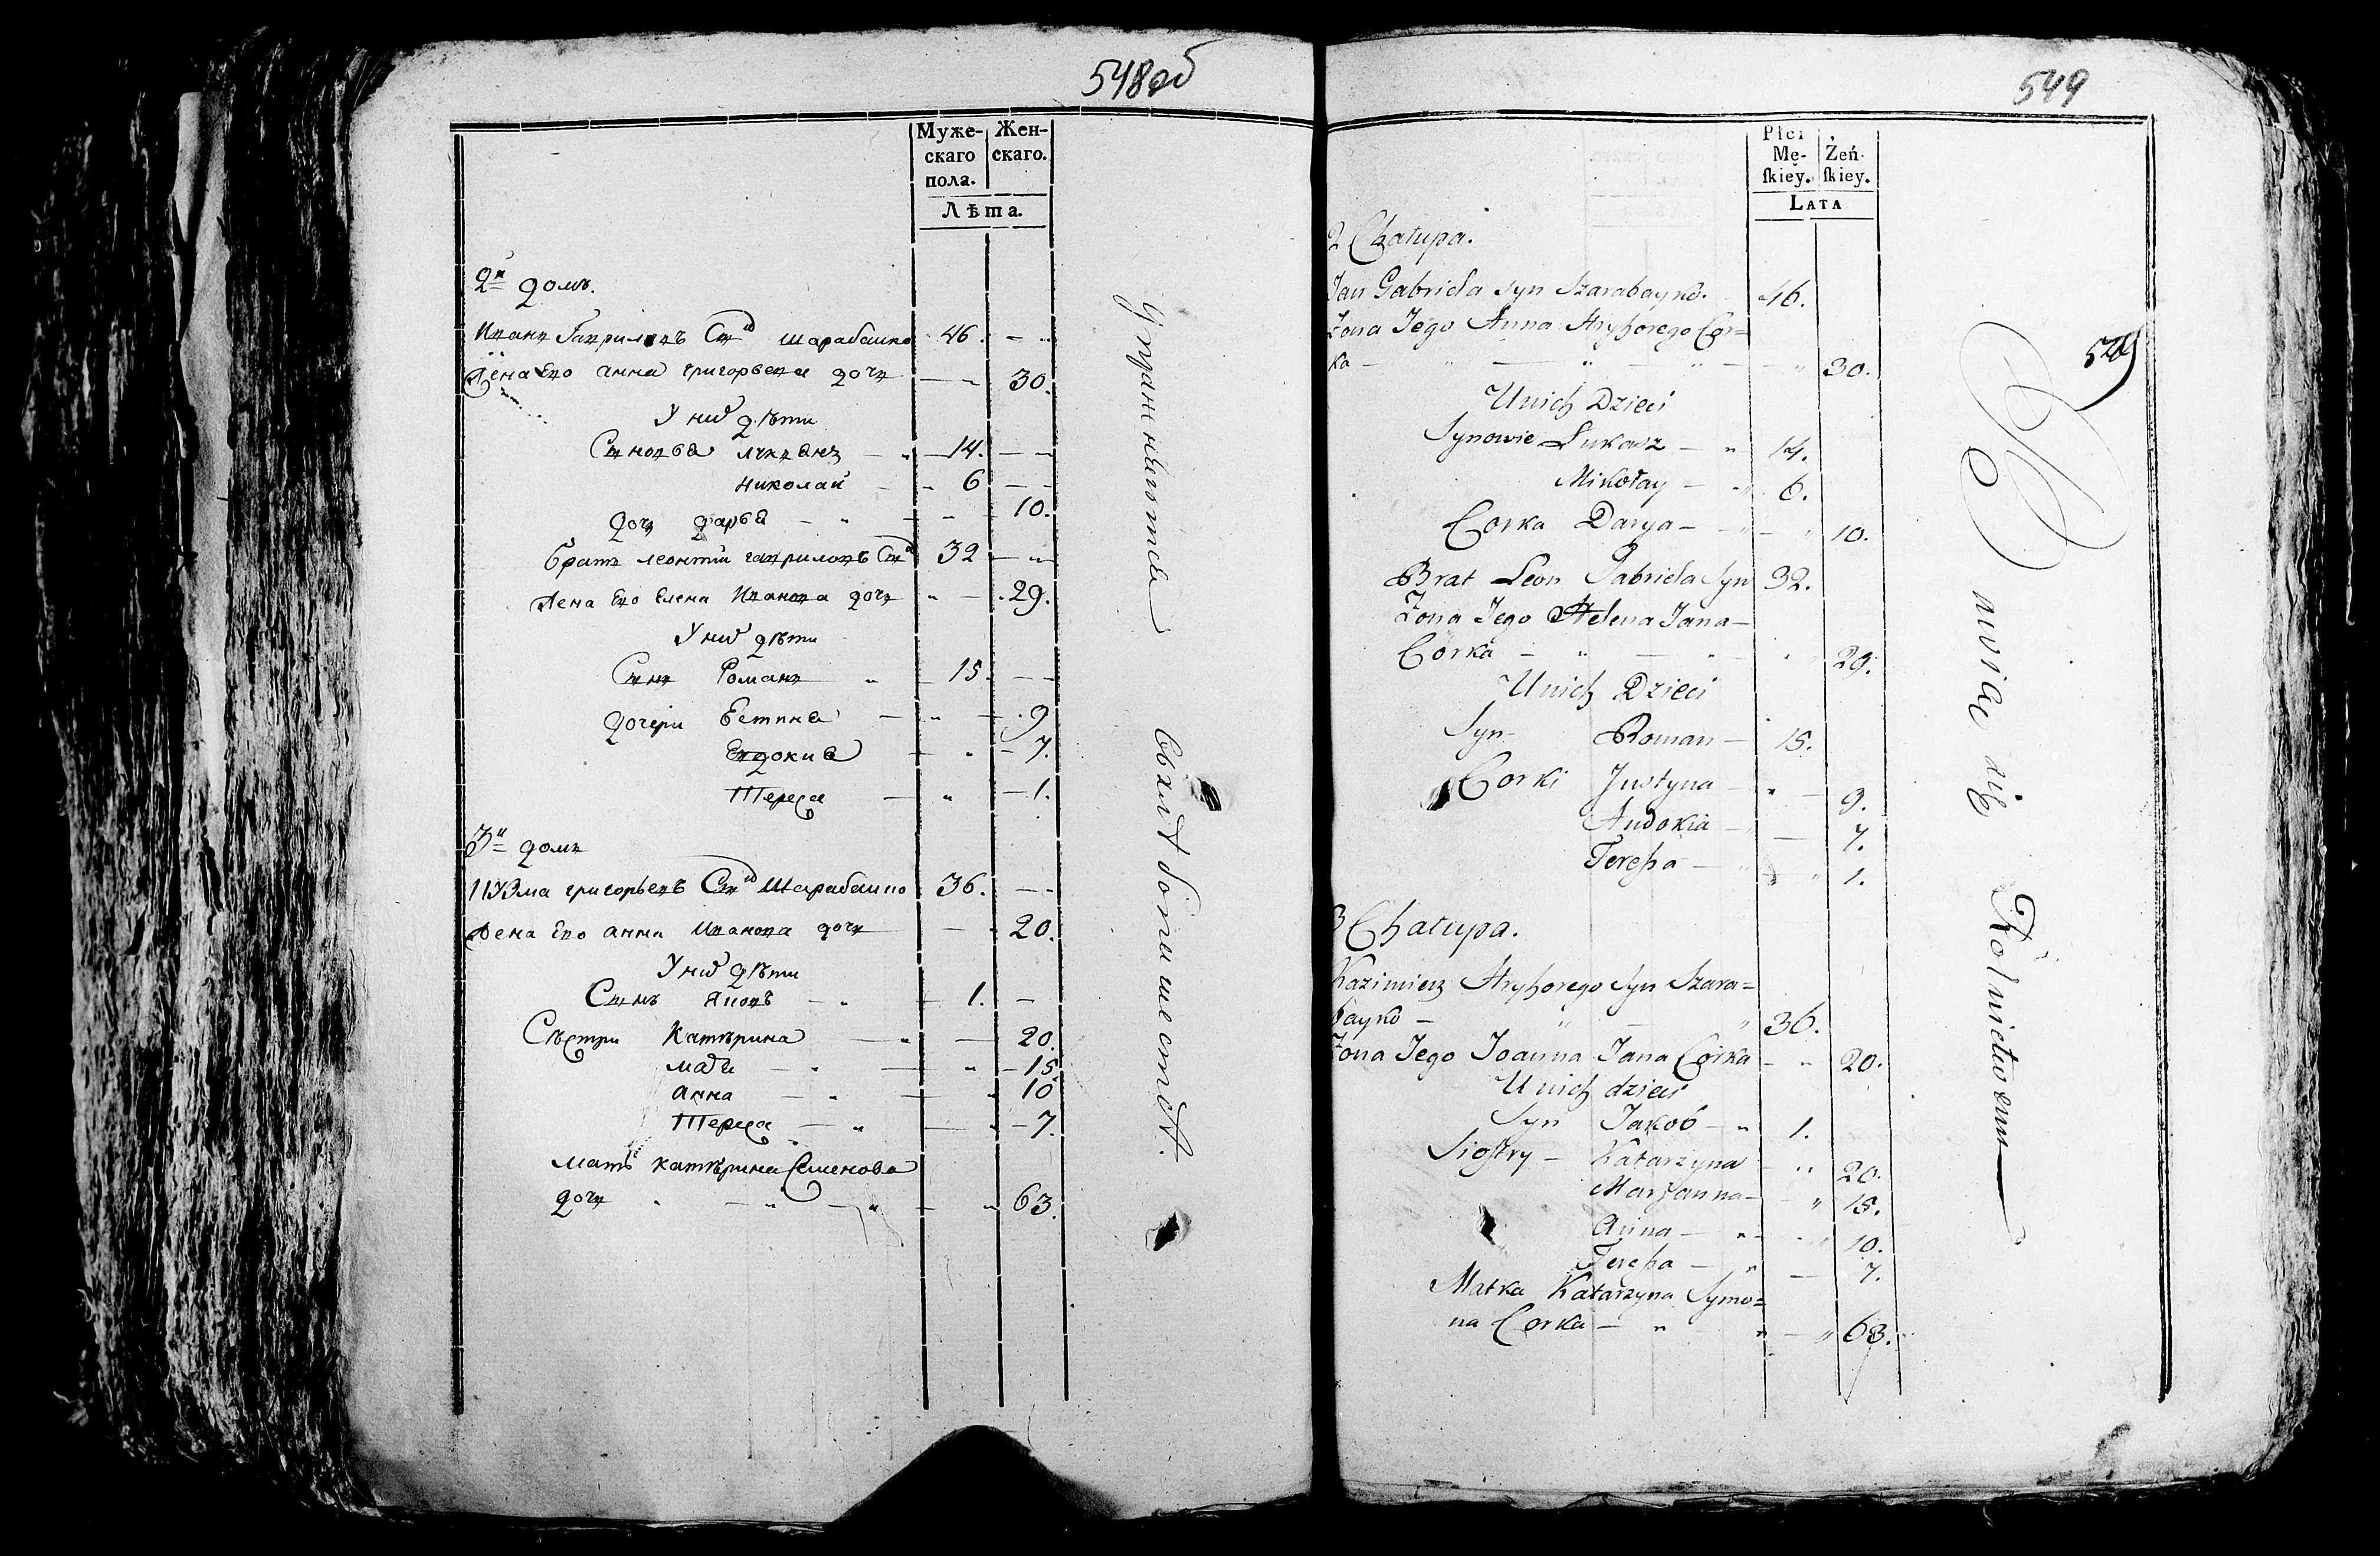 548об
Муже- Жен-
скаго скаго.
пола.
Лѣта.
2й домъ.
Иванъ Гавриловъ Снъ Шарабайко 46.
Жена Его Анна Григорьева дочь 30.
У них дѣти
Сыновья Лукьянъ 14.
Николай 6
дочь Дарья 10.
братъ Леонтий Гавриловъ Снъ 32
Жена Его Елена Иванова дочь 29.
У них дѣти
Сынъ Романъ 15.
дочери 9
Евдокия 7.
Тереса 1.
3й домъ
Григорьевъ Снъ Шарабайко 36.
Жена Его Анна Иванова дочь 20.
У них дѣти
Сынъ Яковъ 1.
Сѣстри Катѣрина 20.
15
Анна 10
Тереса 7.
Мать Катѣрина Семенова
дочь 63.
Упражняются
въ хлѣбопашествѣ.
549
Płci
Mę- Żeń-
ſkiey. ſkiey.
LATA
2 Chałupa.
Jan Gabriela syn Szarabayko. 46.
Żona Jego Anna Hryhorego Cor=
ka 30.
Unich Dzieci
Synowie Łukasz 14.
Mikołay 6.
Corka Darya 10.
Brat Leon Gabriela Syn 32.
Żona Jego Helena Jana
Corka 29.
Unich Dzieci
Syn Roman 15.
Corki Justyna 9.
Audokia 7.
Tereſsa 1.
3 Chałupa.
Kazimierz Hryhorego Syn Szara=
bayko 36.
Żona Jego Joanna Jana Corka 20.
Unich dzieci
Syn Jakob 1.
Sioſtry Katarzyna 20.
Maryanna 15.
Anna 10.
Tereſsa 7.
Matka Katarzyna Symo=
na Corka 63.
549
Rolnictwem